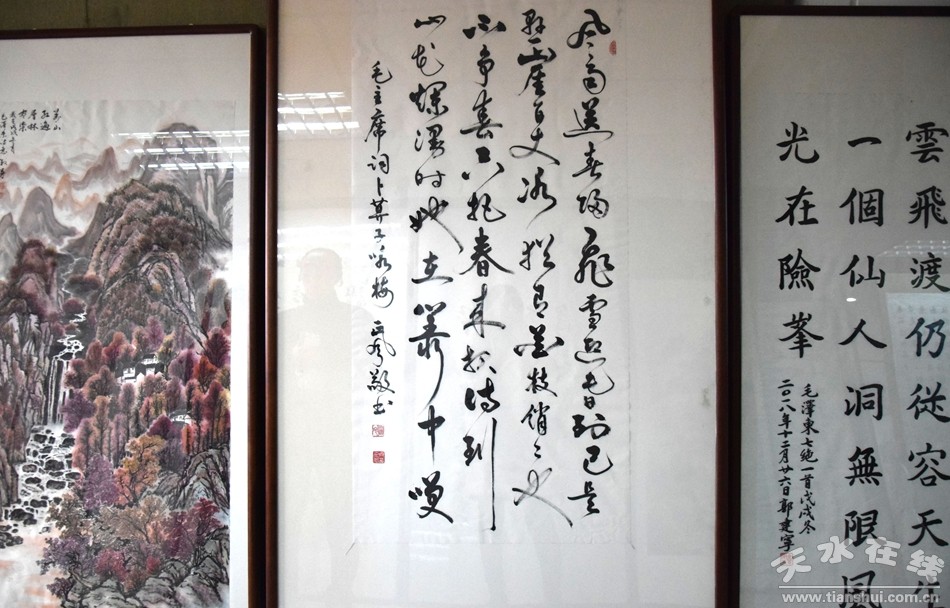 萬山
紅遍
層林
尽染
风雨送春歸飛雪迎春到已是
懸崖百丈冰猶有花枝俏々也
不爭春只把春來报待到
山花爛漫时她在叢中笑
毛主席词卜算子咏梅 敬书
雲飛渡仍從容天生
一個仙人洞無限風
光在險峯
毛澤東七絶一首戊戌冬
二〇一八年十二月廿六日郭建寧
天水在线
www.tianshui.com.cn